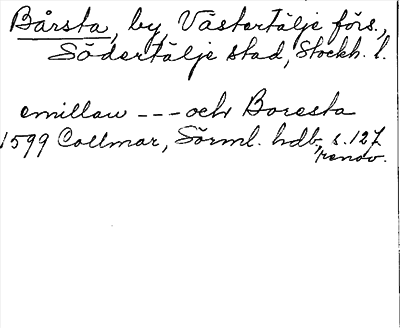 Bårsta, by, Västertälje förs.,
Södertälje stad, Stockh. l.
emillan --- och Boresta
1599 Collmar, Sörml. hdb, s. 127
renov.